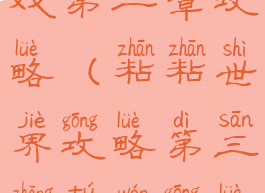 第二章攻
lüè zhān zhān shì
略（粘粘世
jiè gōng lüè dì sān
界攻略第三